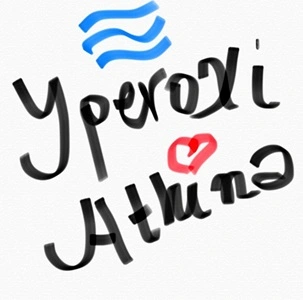 Yperoxi
Athina